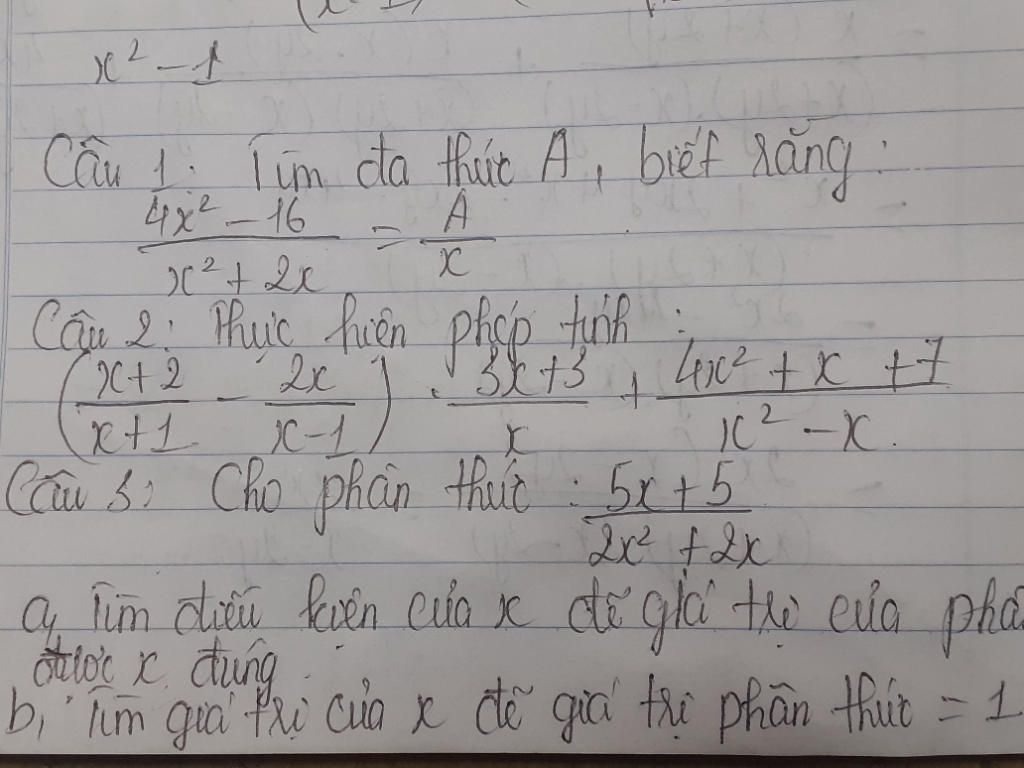 x² - 1
Câu 1: Tìm đa thức A, biết rằng:
(4x² - 16)/(x² + 2x) = A/x
Câu 2: Thực hiện phép tính:
((x+2)/(x+1) - 2x/(x-1)) · (3x+3)/x + (4x² + x + 7)/(x² - x).
Câu 3: Cho phân thức: (5x+5)/(2x² + 2x)
a, Tìm điều kiện của x để giá trị của phâ
được x đúng
b, Tìm giá trị của x để giá trị phân thức = 1